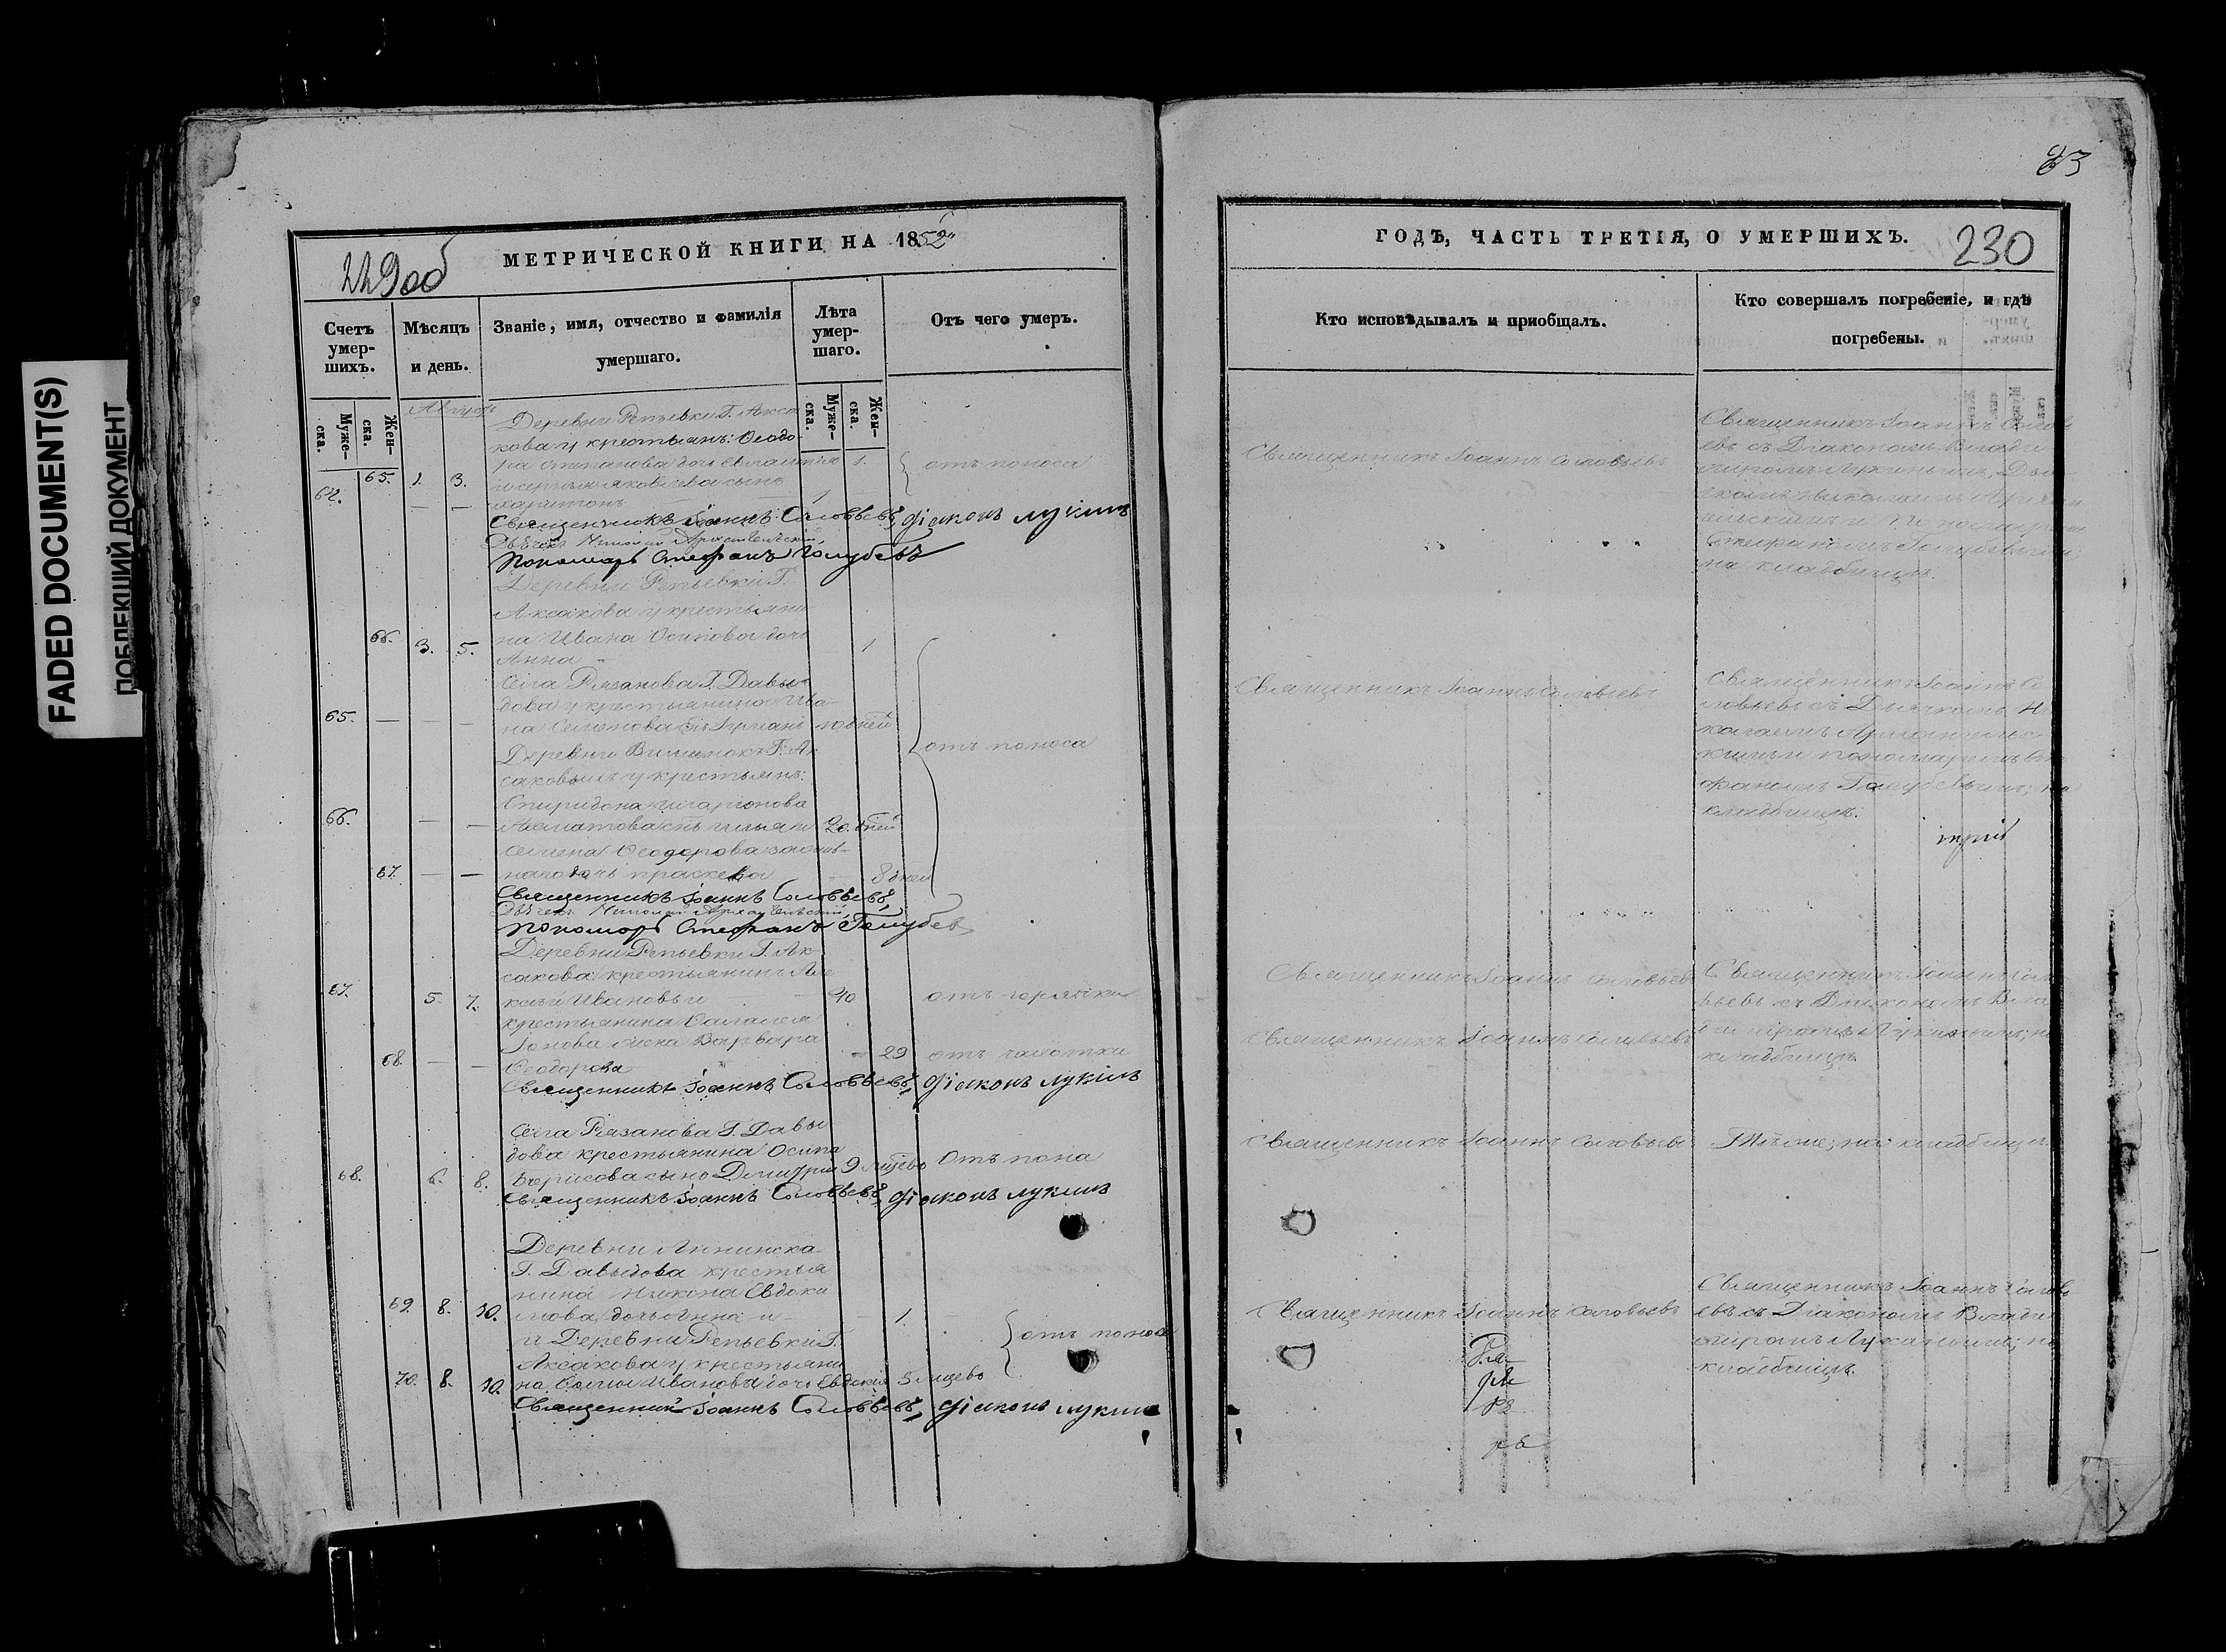 FADED DOCUMENT(S)
ПОБЛЕКШИЙ ДОКУМЕНТ
229об
МЕТРИЧЕСКОЙ КНИГИ НА 1852
Счетъ умер-шихъ.
Мѣсяцъ и день.
Званіе, имя, отчество и фамилія умершаго.
Лѣта умер-шаго.
Отъ чего умеръ.
Муже-ска.
Жен-ска.
Муже-ска.
Жен-ска.
Август
Деревни Репьевки Г. Акса
кова у крестьянъ: Ѳеодо
ра Степанова дочь 1. отъ поноса
65. 1. 3. яковлева сынъ
64. — — харитонъ 1
Священникъ Іоаннъ Соловьевъ, Діаконъ Лукинъ
Дьячекъ Николай Архангельскій,
Пономарь Стефанъ Голубевъ
Деревни Репьевки Г.
Аксакова у крестьяни
66. 3. 5. на Ивана Осипова дочь 1
Анна
Села Рязанова Г. Давы
дова у крестьянина Ива
65. — — — на Семенова 10 дней
отъ поноса
Деревни Г. Ак
саковыхъ у крестьянъ:
Спиридона
66. — — 20. дней
Семена Ѳеодорова
67. — — дочь праскева 8 дней
Священникъ Іоаннъ Соловьевъ,
Дьячекъ Николай Архангельскій,
Пономарь Стефанъ Голубевъ
Деревни Репьевки Г. Ак
сакова крестьянинъ Але
67. 5. 7. ксѣй Ивановъ и 40 отъ горячки
крестьянина
Іонова жена Варвара
68. — — Ѳеодорова 29 отъ чахотки
Священникъ Іоаннъ Соловьевъ, Діаконъ Лукинъ
Села Рязанова Г. Давы
дова крестьянина Осипа
68. 6. 8. Борисова сынъ Димитрій 9 мѣсецъ Отъ пона
Священникъ Іоаннъ Соловьевъ, Діаконъ Лукинъ
Деревни Аннинска
Г. Давыдова крестья
нина Никона Евдоки
69. 8. 10. мова дочь Анна и 1.
и Деревни Репьевки Г. отъ поноса
Аксакова у крестьяни
70. 8. 10. на Иванова дочь Евдокія 5 мѣцевъ
Священникъ Іоаннъ Соловьевъ, Діаконъ Лукинъ
23
ГОДѢ, ЧАСТЬ ТРЕТІЯ, О УМЕРШИХЪ.
230
Кто исповѣдывалъ и приобщалъ.
Кто совершалъ погребеніе, и гдѣ погребены.
Священникъ Іоаннъ Соловьевъ
Священникъ Іоаннъ Солов
евъ съ Діакономъ Влади
миромъ Лукинымъ, Дья
комъ Николаемъ Арханг
ельскимъ и Пономаремъ
Стефаномъ Голубевымъ;
на кладбищѣ.
Священникъ Іоаннъ Соловьевъ
Священникъ Іоаннъ Со
ловьевъ съ Дьячкомъ Н
колаемъ Архангельс
кимъ и пономаремъ Сте
фаномъ Голубевымъ; на
кладбищѣ.
Священникъ Іоаннъ Соловьевъ
Священникъ Іоаннъ Соло
вьевъ съ Діакономъ Вла
диміромъ Лукинымъ; на
кладбищѣ.
Священникъ Іоаннъ Соловьевъ
Священникъ Іоаннъ Соловьевъ
Тѣ же; на кладбищѣ
Священникъ Іоаннъ Соловьевъ
Священникъ Іоаннъ Солов
евъ съ Діакономъ Влади
миромъ Лукинымъ; на
кладбищѣ.